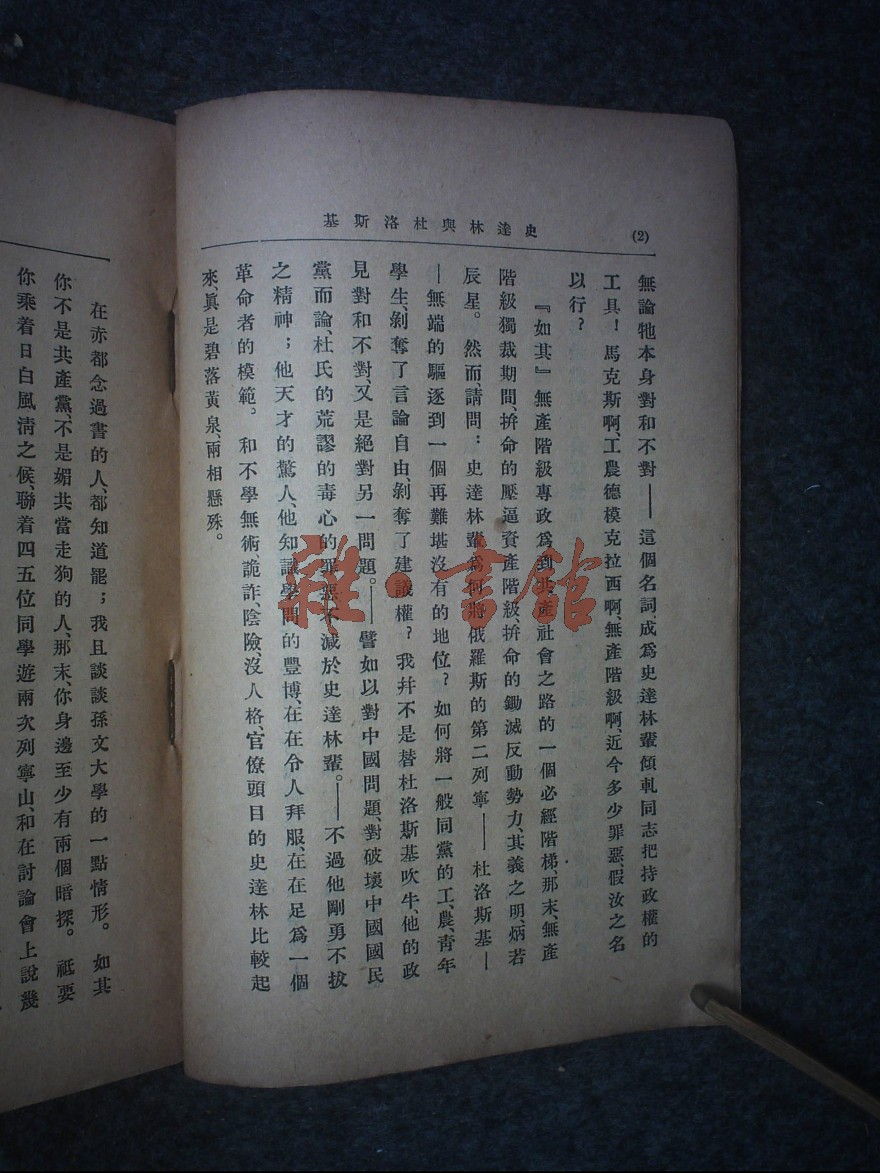 史達林與杜洛斯基
(2)
無論牠本身對和不對——這個名詞成爲史達林輩傾軋同志把持政權的
工具！馬克斯啊、工農德模克拉西啊、無產階級啊、近今多少罪惡、假汝之名
以行？
『如其』無產階級專政爲到共產社會之路的一個必經階梯、那末、無產
階級獨裁期間、拚命的壓逼資產階級、拚命的鋤滅反動勢力、其義之明、炳若
辰星。然而、請問：史達林輩爲何將俄羅斯的第二列寧——杜洛斯基—
—無端的驅逐到一個再難堪沒有的地位？如何將一般同黨的工、農、青年
學生、剝奪了言論自由、剝奪了建議權？我幷不是替杜洛斯基吹牛、他的政
見對和不對、又是絕對另一問題。——譬如以對中國問題、對破壞中國國民
黨而論、杜氏的荒謬的毒心的罪惡不減於史達林輩。——不過他剛勇不拔
之精神；他天才的驚人、他知識學問的豐博、在在令人拜服、在在足爲一個
革命者的模範。和不學無術、詭詐、陰險、沒人格、官僚頭目的史達林比較起
來、眞是碧落黃泉、兩相懸殊。
在赤都念過書的人、都知道罷；我且談談孫文大學的一點情形。如其
你不是共產黨、不是媚共當走狗的人、那末、你身邊至少有兩個暗探。祗要
你乘着日白風淸之候、聯着四五位同學遊兩次列寧山、和在討論會上說幾
雜·書館